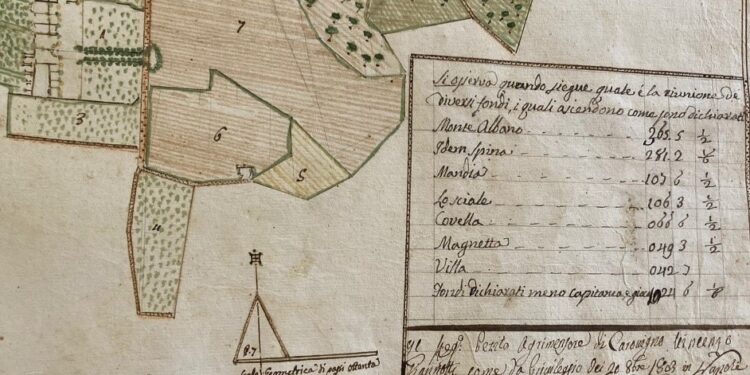 1
7
3
6
5
4
8.7
Scala Geometrica di passi ottanta
Si osserva quando siegue quale è la riunione de
diversi fondi, i quali ascendono come sono dichiarati
Monte Albano 365. 5 ½
Idem Spina 281. 2
Mandia 107 6 ½
Lo sciale 106 3 ½
Covella 066 6 ½
Magnetta 049 3 ½
Villa 042 7
Fondi dichiarati meno capitanea 1024 6
Reg.o Perito Agrimensore di Carovigno Vincenzo
come da Privilegio dei 20 8bre 1803 in Napoli